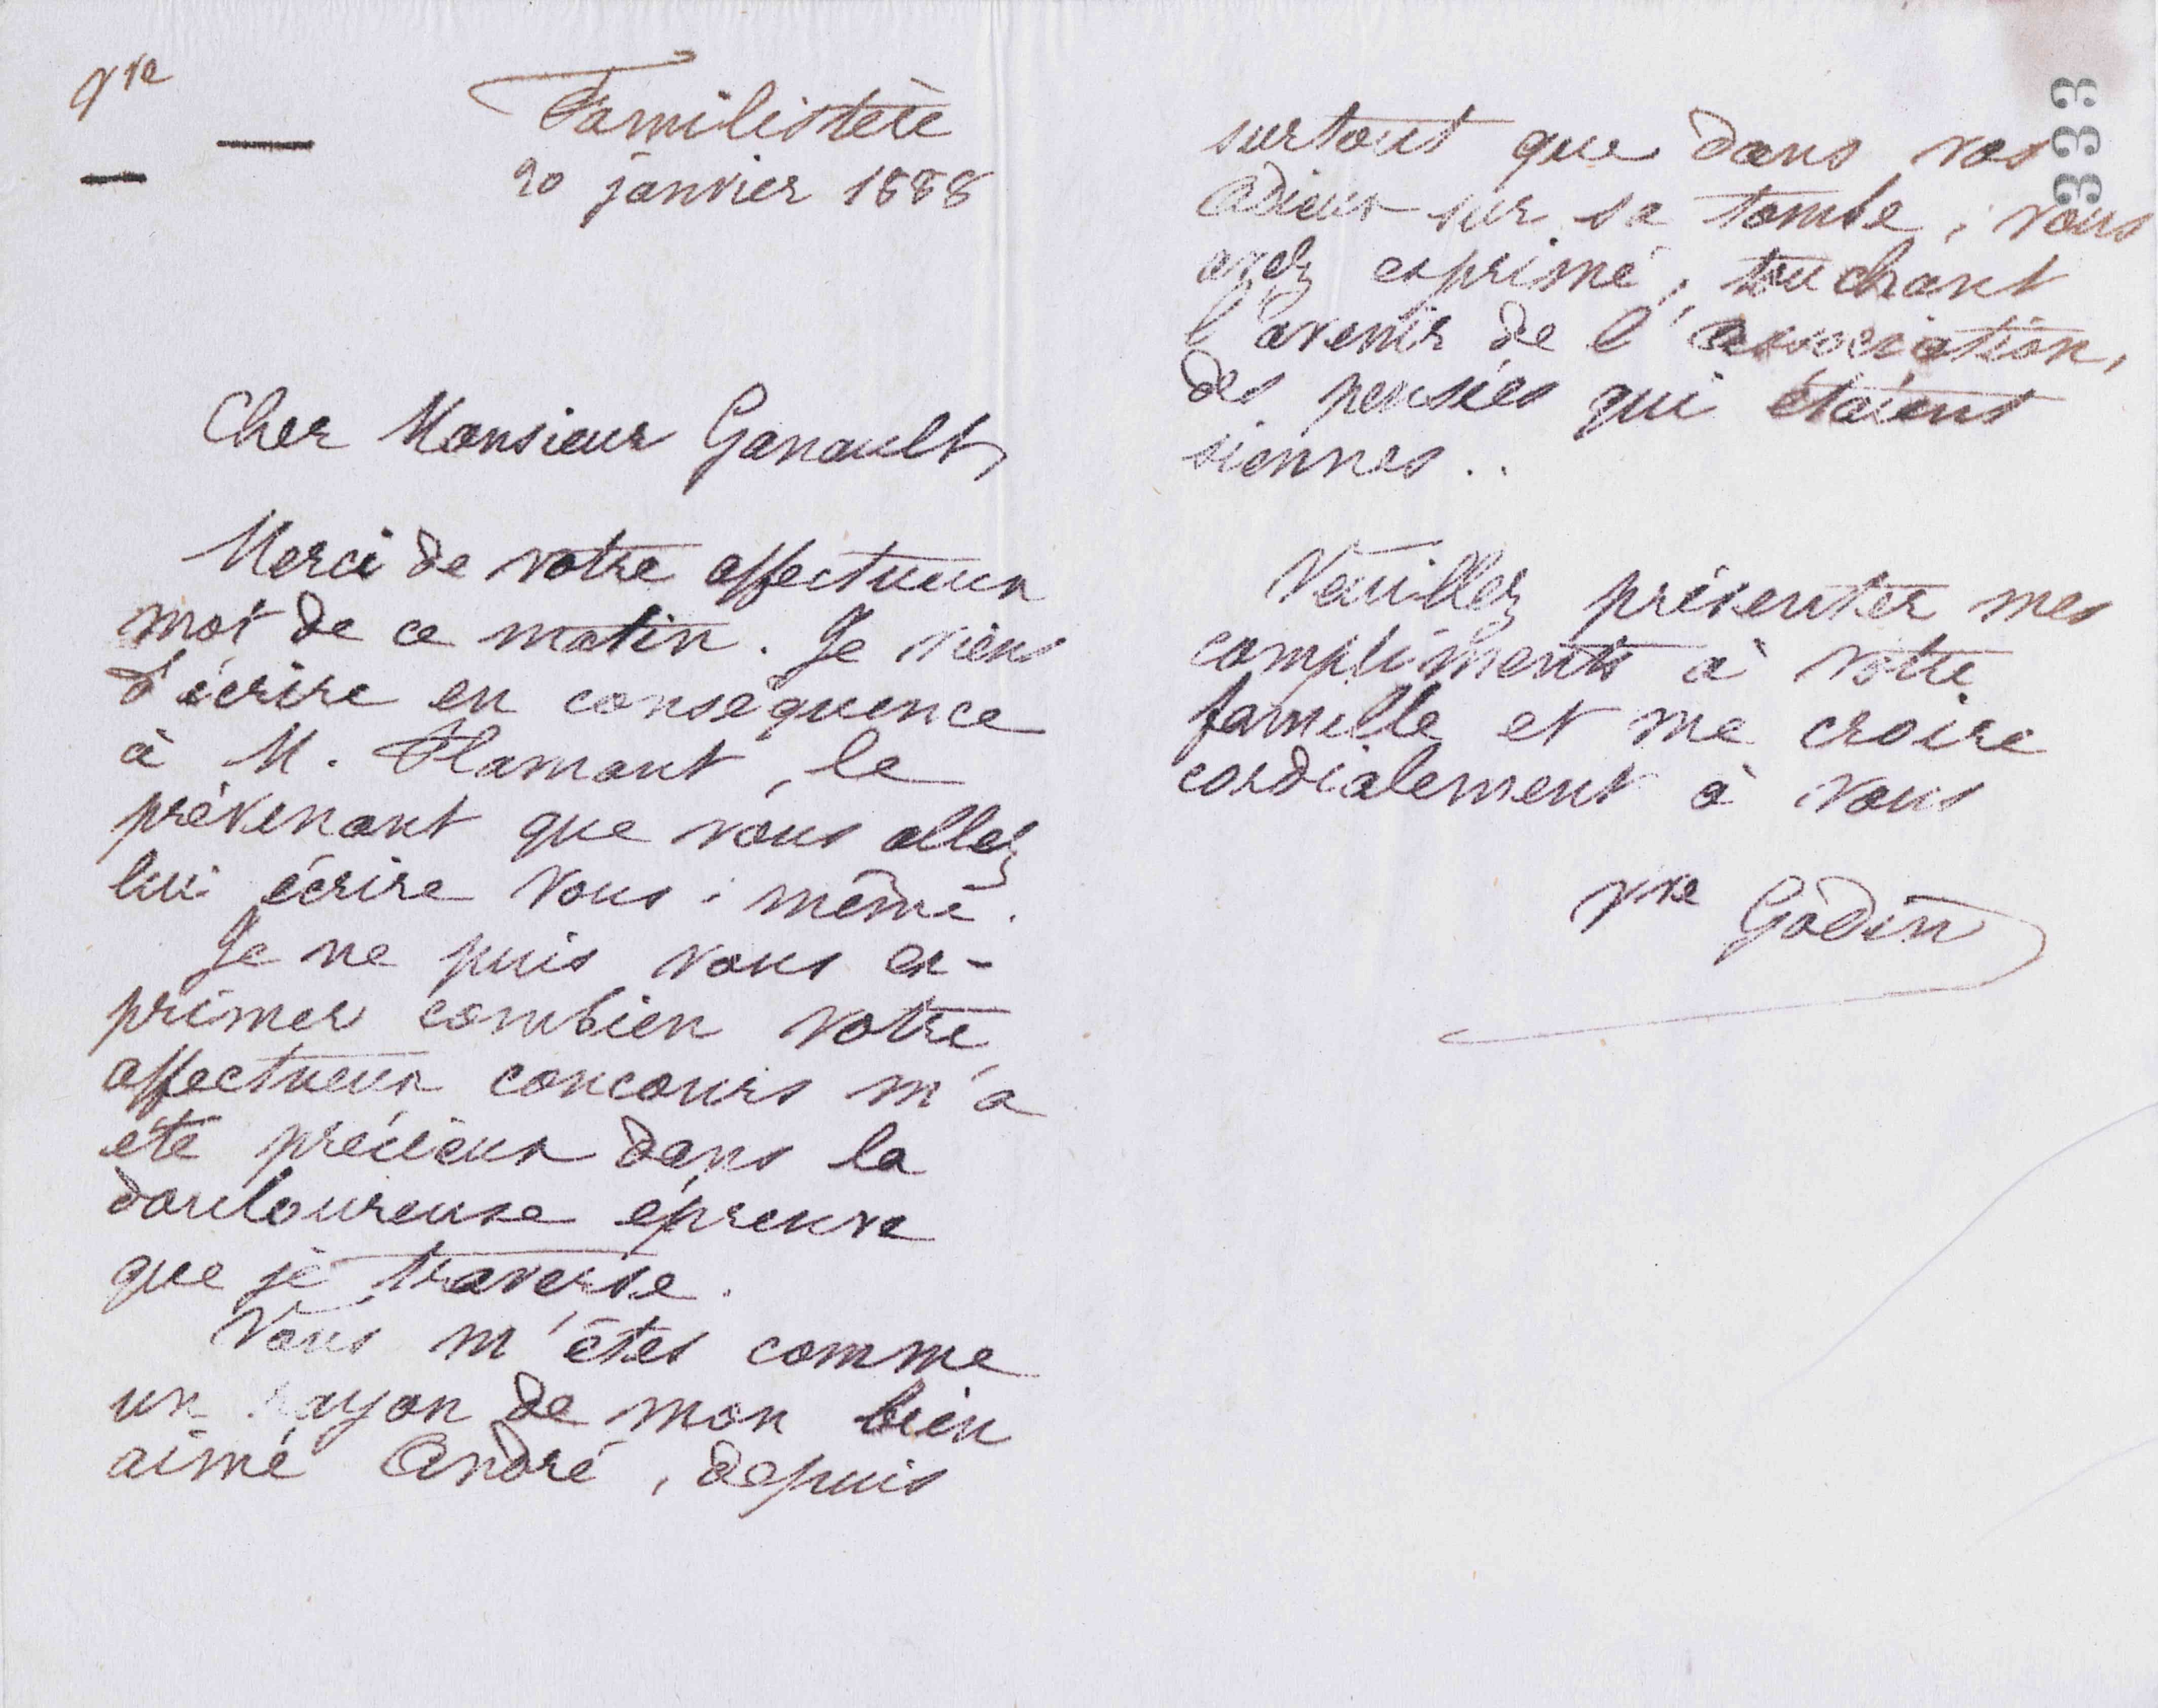 Vve
Familistère
20 janvier 1888
Cher Monsieur Ganault,
Merci de votre affectueux
mot de ce matin. Je viens
d'écrire en conséquence
à M. Flamant, le
prévenant que vous allez
lui écrire vous-même.
Je ne puis vous ex-
primer combien votre
affectueux concours m'a
été précieux dans la
douloureuse épreuve
que je traverse.
Vous m'êtes comme
un rayon de mon bien
aimé André, depuis
333
surtout que dans vos
adieux sur sa tombe, vous
avez exprimé, touchant
l'avenir de l'association,
des pensées qui étaient
siennes..
Veuillez présenter mes
compliments à votre
famille et me croire
cordialement à vous
Vve Godin